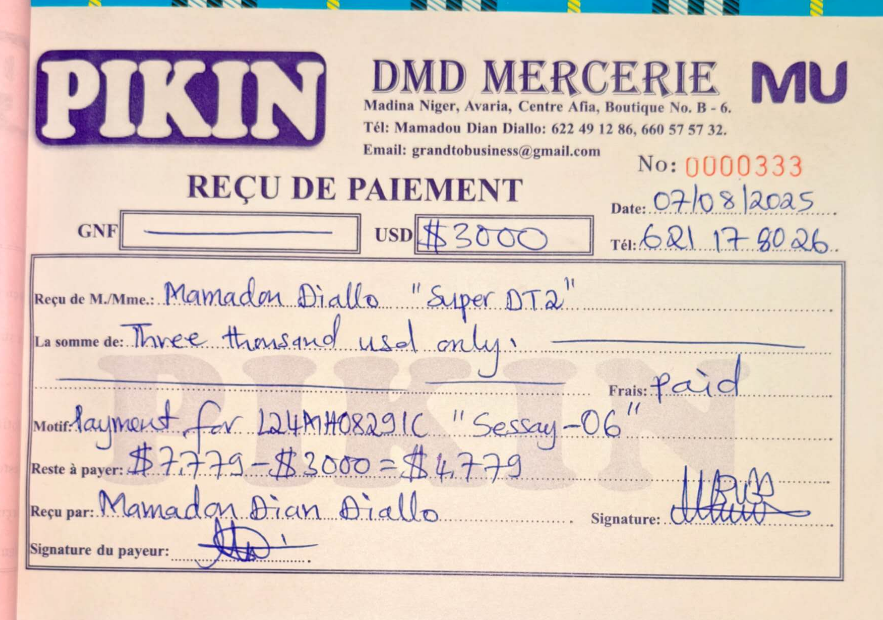 PIKIN
DMD MERCERIE
MU
Madina Niger, Avaria, Centre Afia, Boutique No. B - 6.
Tél: Mamadou Dian Diallo: 622 49 12 86, 660 57 57 32.
Email: grandtobusiness@gmail.com
No: 0000333
REÇU DE PAIEMENT
Date: 07/08/2025
GNF USD $3000
Tél: 621 17 80 26
Reçu de M./Mme.: Mamadou Diallo "Super DT2"
La somme de: Three thousand usd only.
Frais: Paid
Motif: Payment for "Sessay-06"
Reste à payer: $7,779-$3000=$4,779
Reçu par: Mamadou Dian Diallo
Signature:
Signature du payeur:
PIKIN